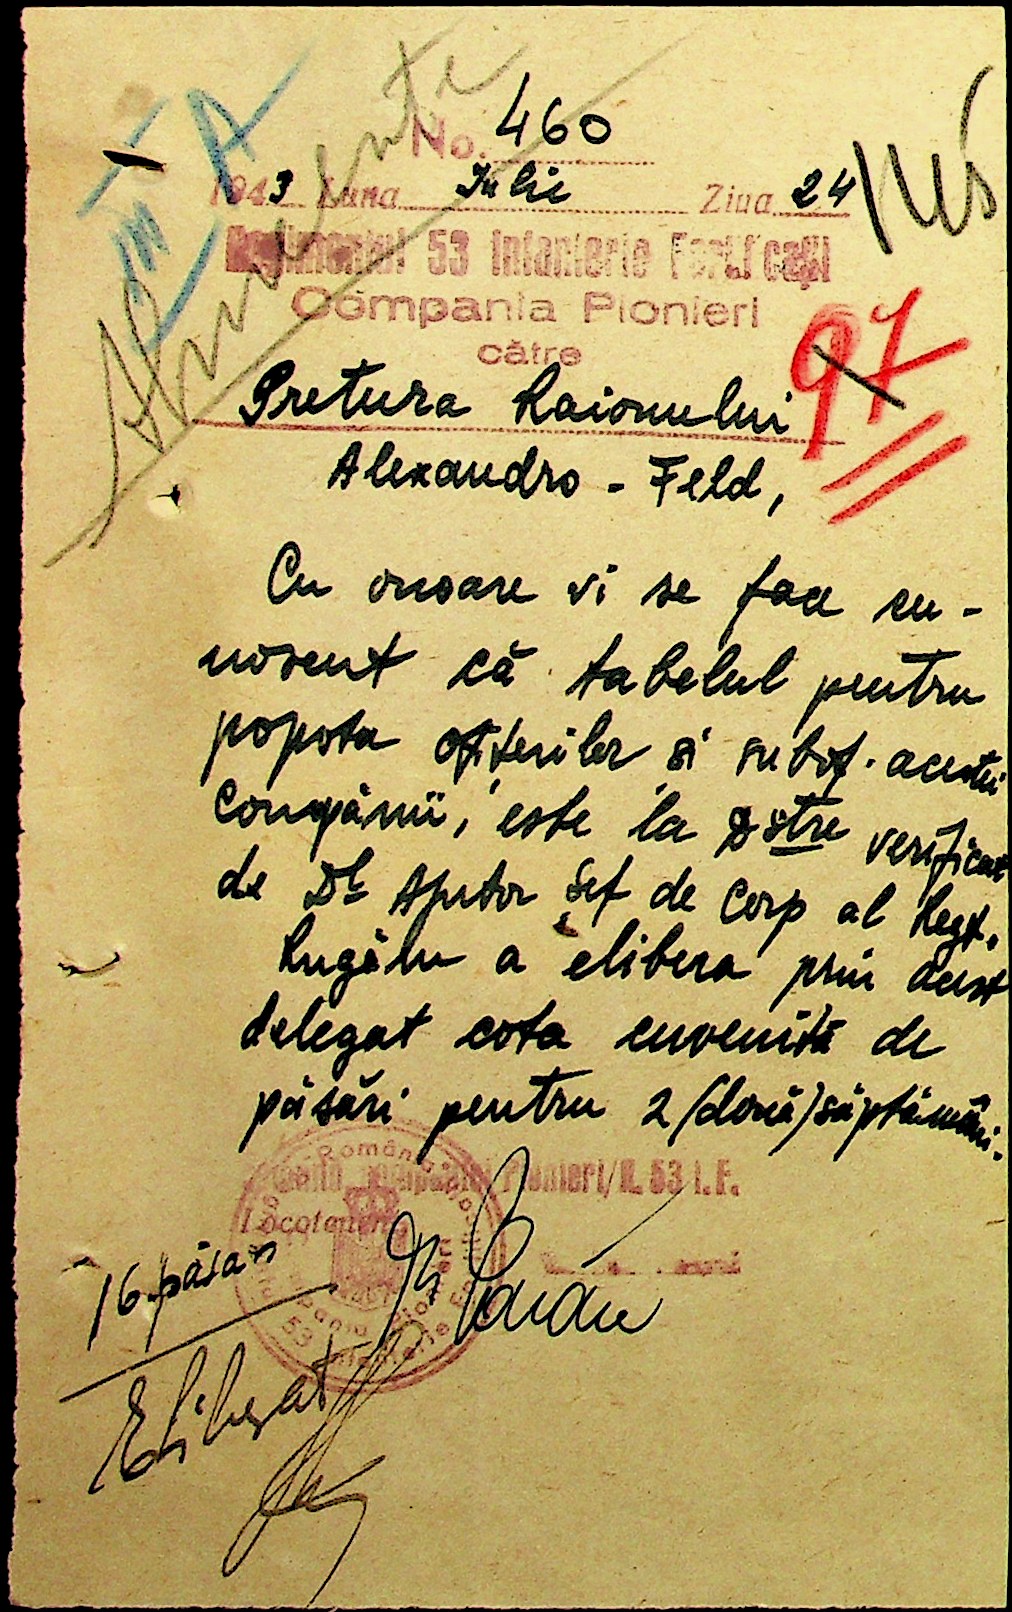 No. 460
1943 Luna Iulie Ziua 24
Regimentul 53 Infanterie Fortificații
Compania Pionieri
către
Pretura Raionului
Alexandro-Feld,
Alimente
97
Cu onoare vi se face cu-
noscut că tabelul pentru
popota ofițerilor si subof. acestei
Companii, este la Dstre verificat
de Dl Ajutor Șef de Corp al Regt.
Rugăm a elibera prin acest
delegat cota cuvenită de
păsări pentru 2 (două) săptămâni.
Companiei Pionieri/R. 53 I. F.
Locotenent
16 păsari
Eliberat